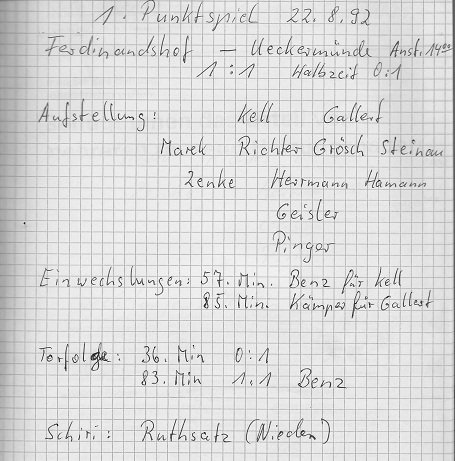 1. Punktspiel 22.8.92
Ferdinandshof – Ueckermünde Anst. 14⁰⁰
1 : 1 Halbzeit 0:1
Aufstellung: Kell Gallert
Marek Richter Grösch Steinau
Zenke Herrmann Hamann
Geisler
Pinger
Einwechslungen: 57. Min. Benz für Kell
85. Min. Kämper für Gallert
Torfolge: 36. Min 0:1
83. Min 1:1 Benz
Schiri: Ruthsatz (Nieden)